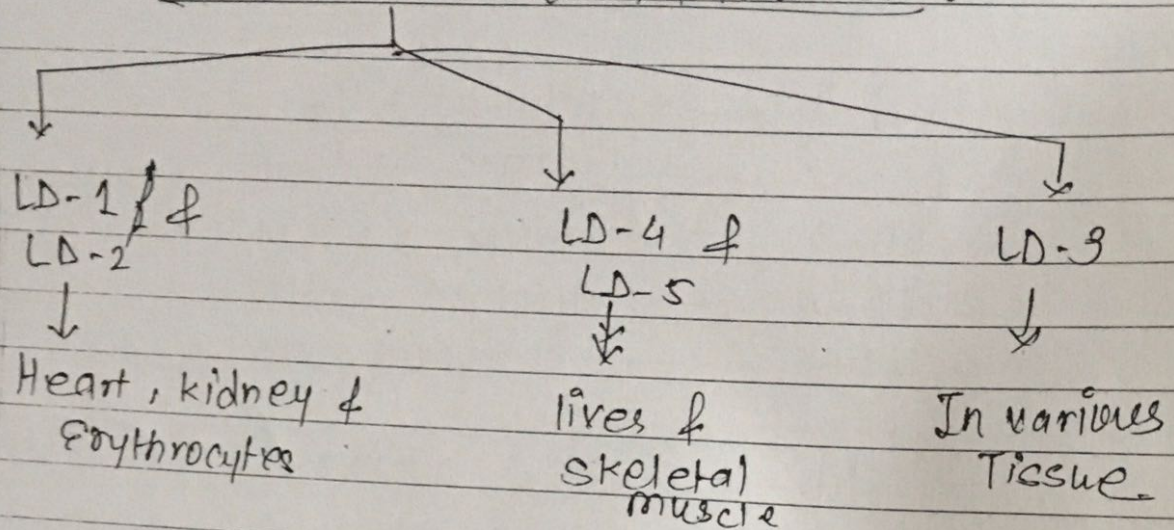 LD-1 &
LD-2
Heart, kidney &
Erythrocytes
LD-4 &
LD-5
lives &
skeletal
muscle
LD-3
In various
Tissue.